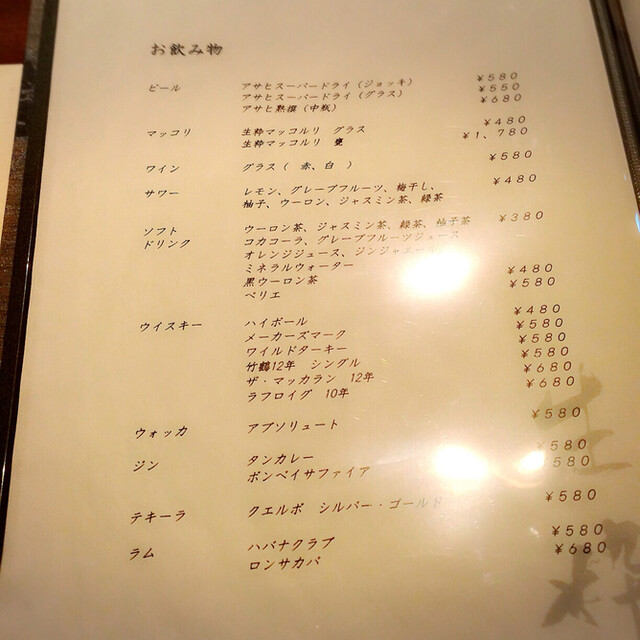 お飲み物
ビール アサヒスーパードライ（ジョッキ） ￥580
アサヒスーパードライ（グラス） ￥550
アサヒ熟撰（中瓶） ￥680
マッコリ 生粋マッコルリ グラス ￥480
生粋マッコルリ 甕 ￥1、780
ワイン グラス（ 赤、白 ） ￥580
サワー レモン、グレープフルーツ、梅干し、 ￥480
柚子、ウーロン、ジャスミン茶、緑茶
ソフト ウーロン茶、ジャスミン茶、緑茶、柚子茶 ￥380
ドリンク コカコーラ、グレープフルーツジュース
オレンジジュース、ジンジャエール
ミネラルウォーター
黒ウーロン茶 ￥480
ペリエ ￥580
ウイスキー ハイボール ￥480
メーカーズマーク ￥580
ワイルドターキー ￥580
竹鶴12年 シングル ￥580
ザ・マッカラン 12年 ￥680
ラフロイグ 10年 ￥680
ウォッカ アブソリュート ￥580
ジン タンカレー ￥580
ボンベイサファイア ￥580
テキーラ クエルボ シルバー・ゴールド ￥580
ラム ハバナクラブ ￥580
ロンサカパ ￥680
生
粋